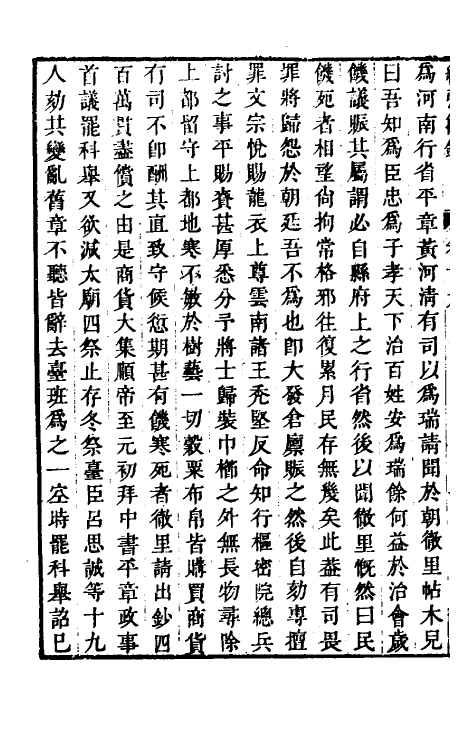 為河南行省平章黃河清有司以為瑞請聞於朝徹里帖木兒
曰吾知為臣忠為子孝天下治百姓安為瑞餘何益於治會歲
饑議賑其屬謂必自縣府上之行省然後以聞徹里慨然曰民
饑死者相望尚拘常格邪往復累月民存無幾矣此葢有司畏
罪將歸怨於朝廷吾不為也卽大發倉廪賑之然後自劾專擅
罪文宗悅賜龍衣上尊雲南諸王禿堅反命知行樞密院總兵
討之事平賜賚甚厚悉分予將士歸裝巾櫛之外無長物尋除
上都留守上都地寒不敏於樹藝一切穀粟布帛皆購買商貨
有司不卽酬其直致守候愆期甚有饑寒死者徹里請出鈔四
百萬貫盡償之由是商貨大集順帝至元初拜中書平章政事
首議罷科舉又欲減太廟四祭止存冬祭臺臣呂思誠等十九
人劾其變亂舊章不聽皆辭去臺班為之一空時罷科舉詔已